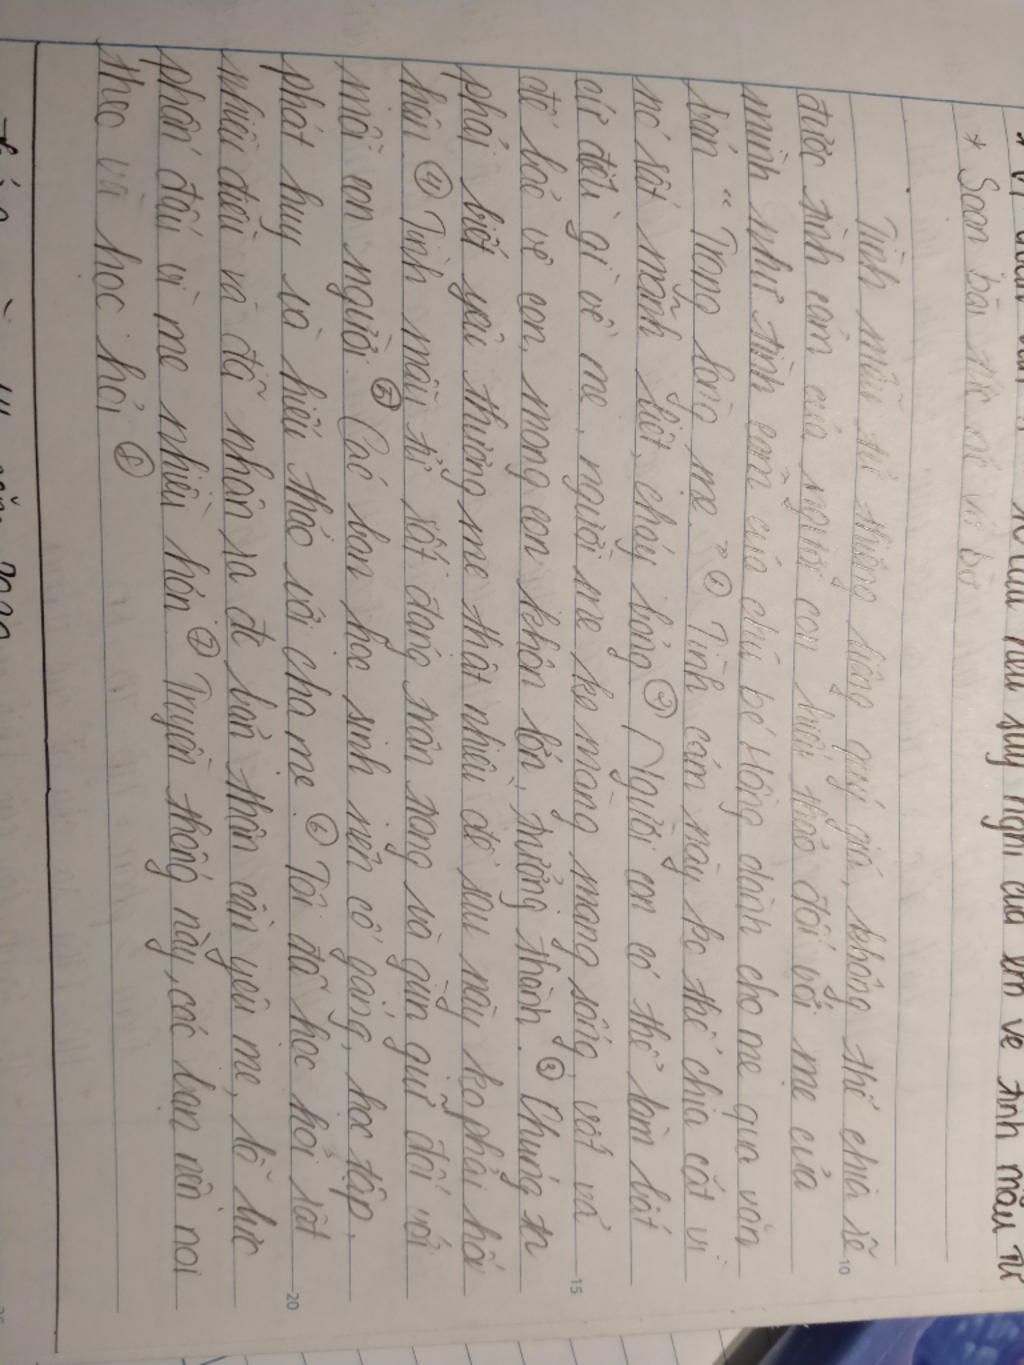 suy nghĩ của em về tình mẫu tử
* Soạn bài sức mẻ và bờ
Tình mẫu tử thiêng liêng quý giá, không thể chia sẽ
được tình cảm của người con hiếu thảo đối với mẹ của
mình như tình cảm của chú bé Hồng dành cho mẹ qua văn
bản " Trong lòng mẹ " ① Tình cảm này ko thể chia cắt vì
nó rất mãnh liệt, cháy bỏng ② Người con có thể làm bất
cứ điều gì về mẹ, người mẹ ko màng mạng sống, vất vả
để bảo vệ con, mong con khôn lớn, trưởng thành. ③ Chúng ta
phải biết yêu thương mẹ thật nhiều để sau này ko phải hối
hận ④ Tình mẫu tử rất đáng trân trọng và gìn giữ đối với
mỗi con người. ⑤ Các bạn học sinh nên cố gắng, học tập,
phát huy và hiếu thảo với cha mẹ. ⑥ Tôi đã học hỏi rất
nhiều điều và đã nhận ra để bản thân cần yêu mẹ, lỗ lực
phấn đấu vì mẹ nhiều hơn ⑦ Truyền thống này, các bạn nên noi
theo và học hỏi ⑧